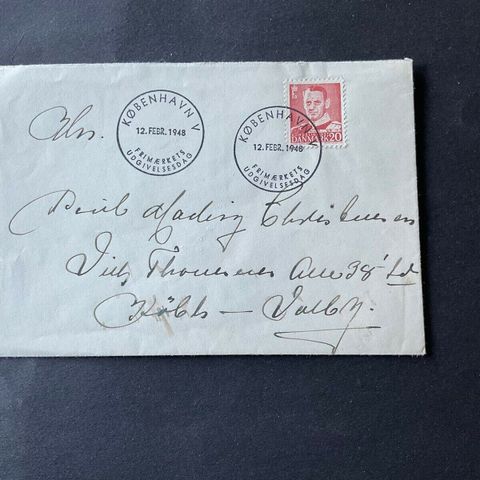 KØBENHAVN V
12. FEBR. 1948
FRIMÆRKETS
UDGIVELSESDAG
KØBENHAVN V
12. FEBR. 1948
FRIMÆRKETS
UDGIVELSESDAG
DANMARK 20
Hr.
Poul Christensen
Vilh Thomsens Alle 38
Kbh — Valby.